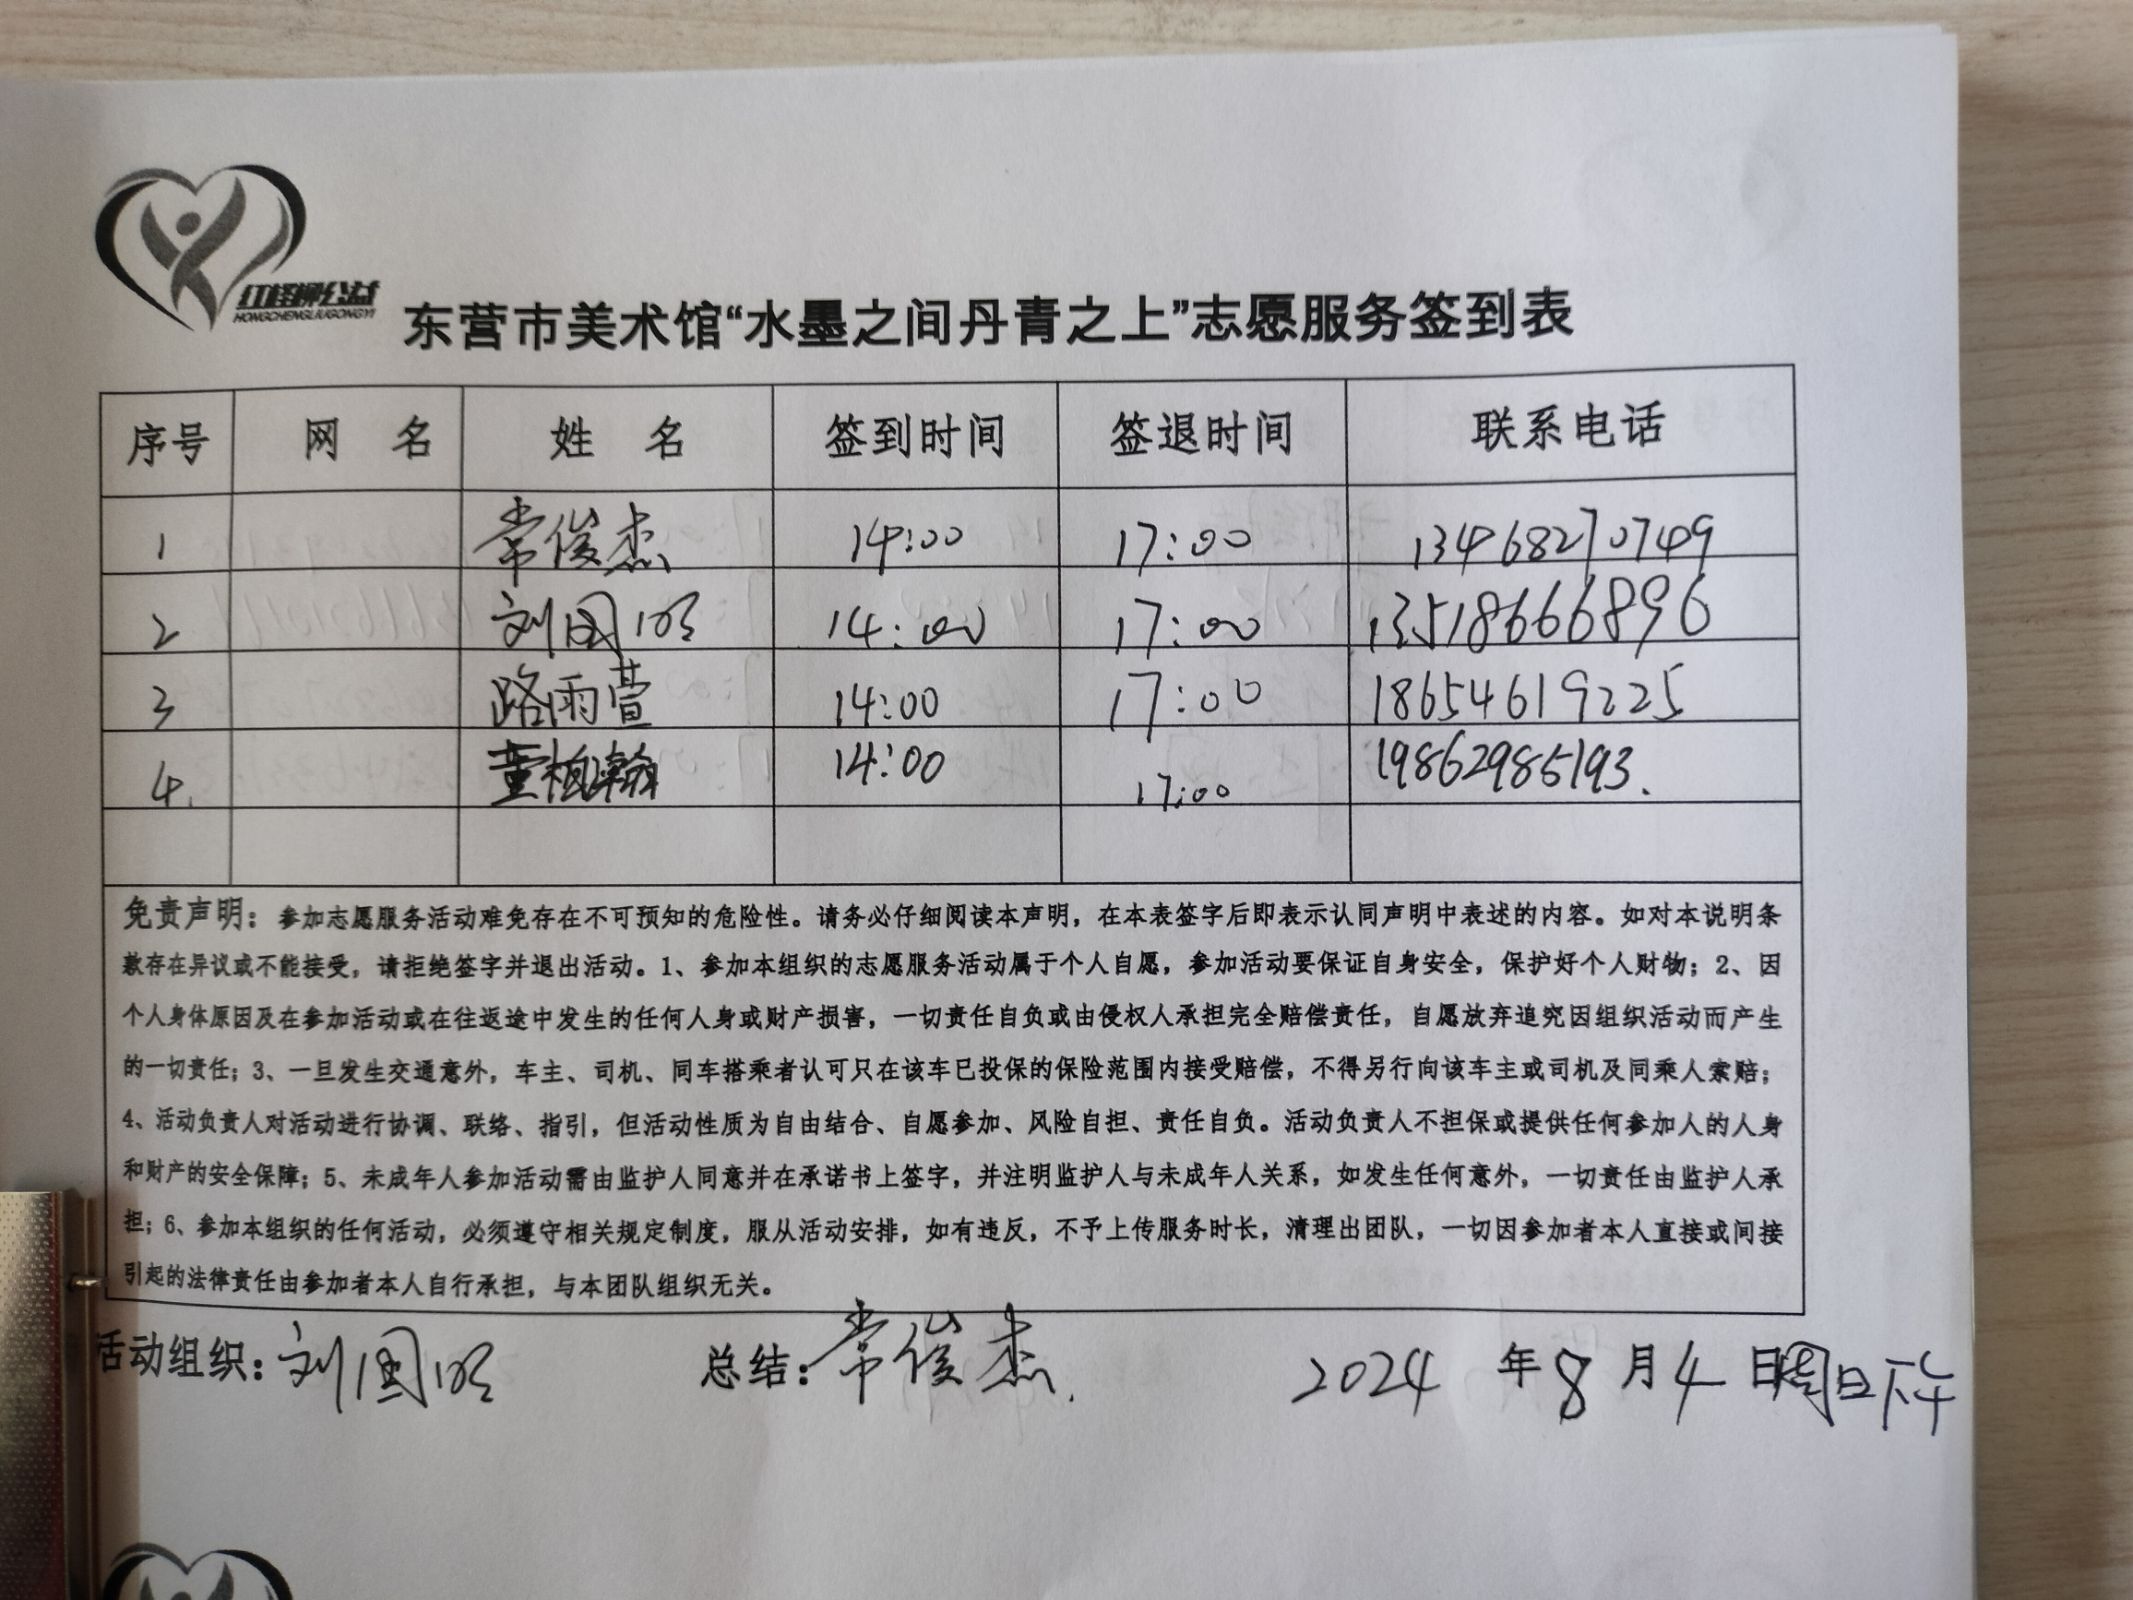 红柽柳公益
HONGCHENGLIUGONGYI
东营市美术馆“水墨之间丹青之上”志愿服务签到表
序号 网 名 姓 名 签到时间 签退时间 联系电话
1 常俊杰 14:00 17:00 13468270749
2 刘国明 14:00 17:00 13518666896
3 路雨萱 14:00 17:00 18654619225
4. 董柏瀚 14:00 17:00 19862985193.
免责声明：参加志愿服务活动难免存在不可预知的危险性。请务必仔细阅读本声明，在本表签字后即表示认同声明中表述的内容。如对本说明条
款存在异议或不能接受，请拒绝签字并退出活动。1、参加本组织的志愿服务活动属于个人自愿，参加活动要保证自身安全，保护好个人财物；2、因
个人身体原因及在参加活动或在往返途中发生的任何人身或财产损害，一切责任自负或由侵权人承担完全赔偿责任，自愿放弃追究因组织活动而产生
的一切责任；3、一旦发生交通意外，车主、司机、同车搭乘者认可只在该车已投保的保险范围内接受赔偿，不得另行向该车主或司机及同乘人索赔；
4、活动负责人对活动进行协调、联络、指引，但活动性质为自由结合、自愿参加、风险自担、责任自负。活动负责人不担保或提供任何参加人的人身
和财产的安全保障；5、未成年人参加活动需由监护人同意并在承诺书上签字，并注明监护人与未成年人关系，如发生任何意外，一切责任由监护人承
担；6、参加本组织的任何活动，必须遵守相关规定制度，服从活动安排，如有违反，不予上传服务时长，清理出团队，一切因参加者本人直接或间接
引起的法律责任由参加者本人自行承担，与本团队组织无关。
活动组织：刘国明 总结：常俊杰. 2024 年 8 月 4 日周日下午